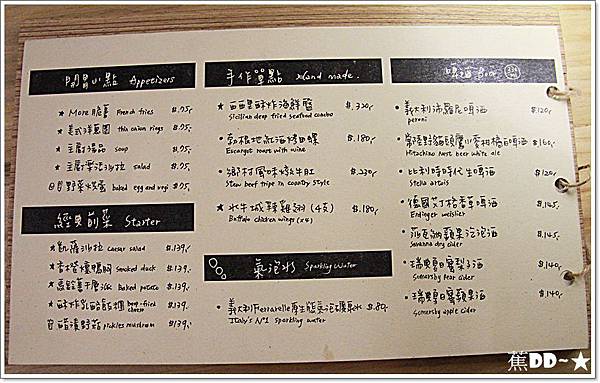 開胃小點 Appetizers
★ More脆薯 French fries $.95.
★ 美式洋蔥圈 thin onion rings $.95.
★ 主廚湯品 soup $.95.
★ 主廚 沙拉 salad $.95.
野菜烘蛋 baked egg and vegi $.95.
經典前菜 Starter
★ 凱薩沙拉 Caesar salad $139.
★ 香橙燻鴨胸 smoked duck $139.
Baked potato $139.
★ 酥炸乳酪 deep-fried cheese $139.
醋漬野菇 pickles mushrum $139.
手作單點 Hand made.
★ 西西里酥炸海鮮 $.320,
Sicilian deep fried seafood combo
• 勃根地紅酒烤田螺 $.180,
Escargot roast with wine
• 鄉村風味燉牛肚 $.230,
Stew beef tripe in country style
• 水牛城辣雞翅 (4支) $.180,
Buffalo chicken wings (x4)
氣泡水 Sparkling Water
• 義大利Ferrarelle 氣泡礦泉水 $.80,
Italy's Nº1 sparkling water
啤酒 Beer
• 義大利沛羅尼啤酒 $120,
peroni
• 常陸野貓頭鷹小麥柑橘白啤酒 $160,
Hitachino Nest beer white ale
• 比利時時代生啤酒 $120,
Stella artois
• 德國艾丁格香草啤酒 $145.
Erdinger weißbier
• 莎瓦納蘋果泡泡酒 $145,
Savanna dry cider
• 瑞典夏日蜜梨子酒 $.140,
Somersby pear cider
• 瑞典夏日蜜蘋果酒 $.140,
Somersby apple cider
蕉DD~★